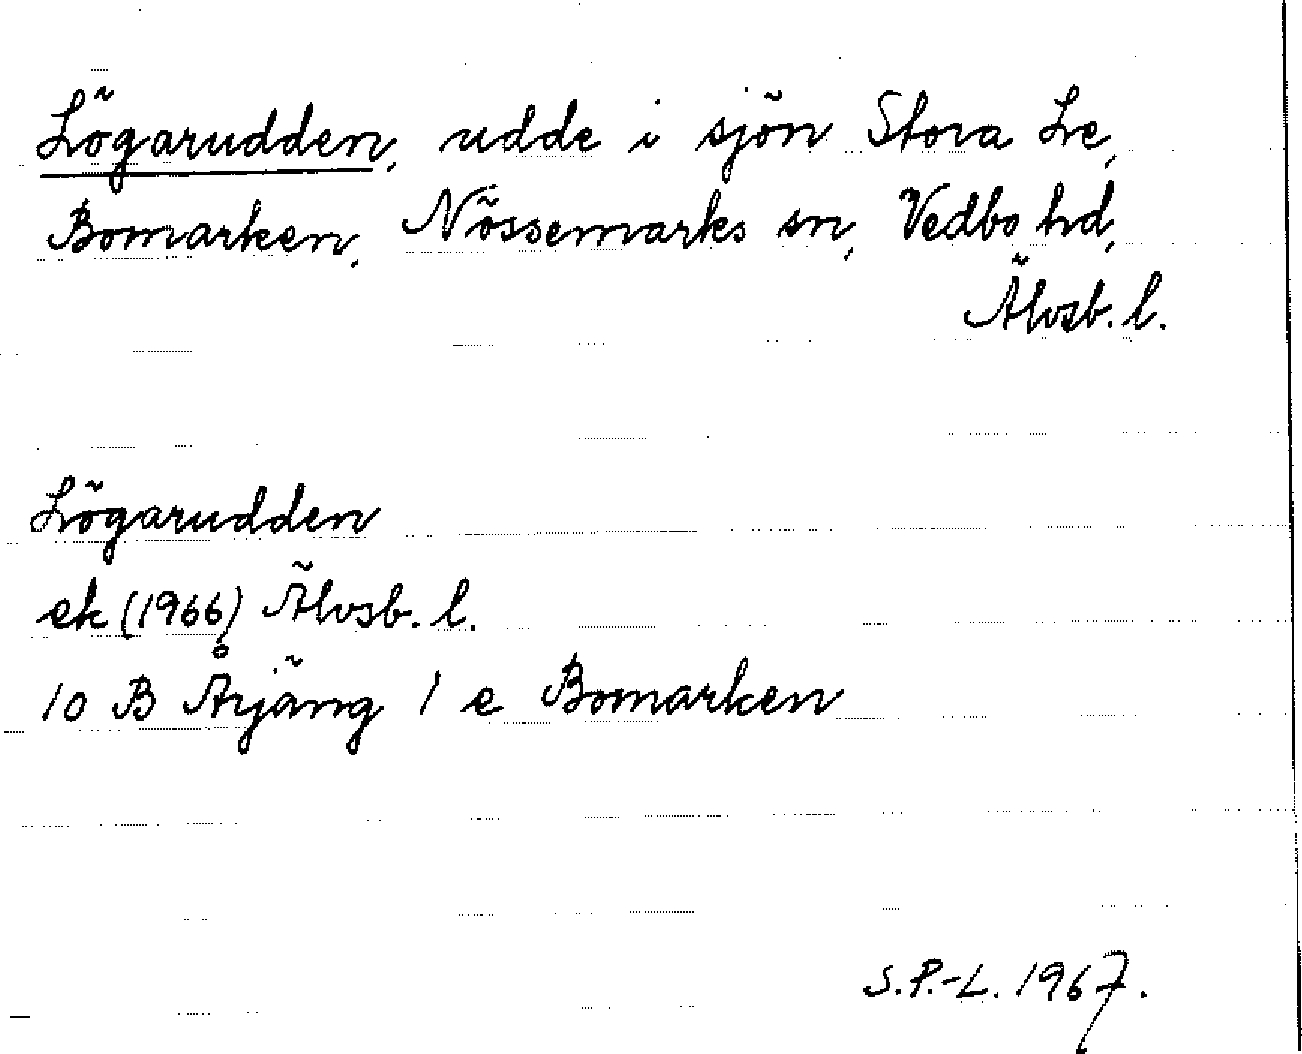 Lögarudden, udde i sjön Stora Le,
Bomarken, Nössemarks sn, Vedbo hd,
Älvsb. l.
Lögarudden
ek (1966) Älvsb. l.
10 B Årjäng 1 e Bomarken
S.P.-L. 1967.